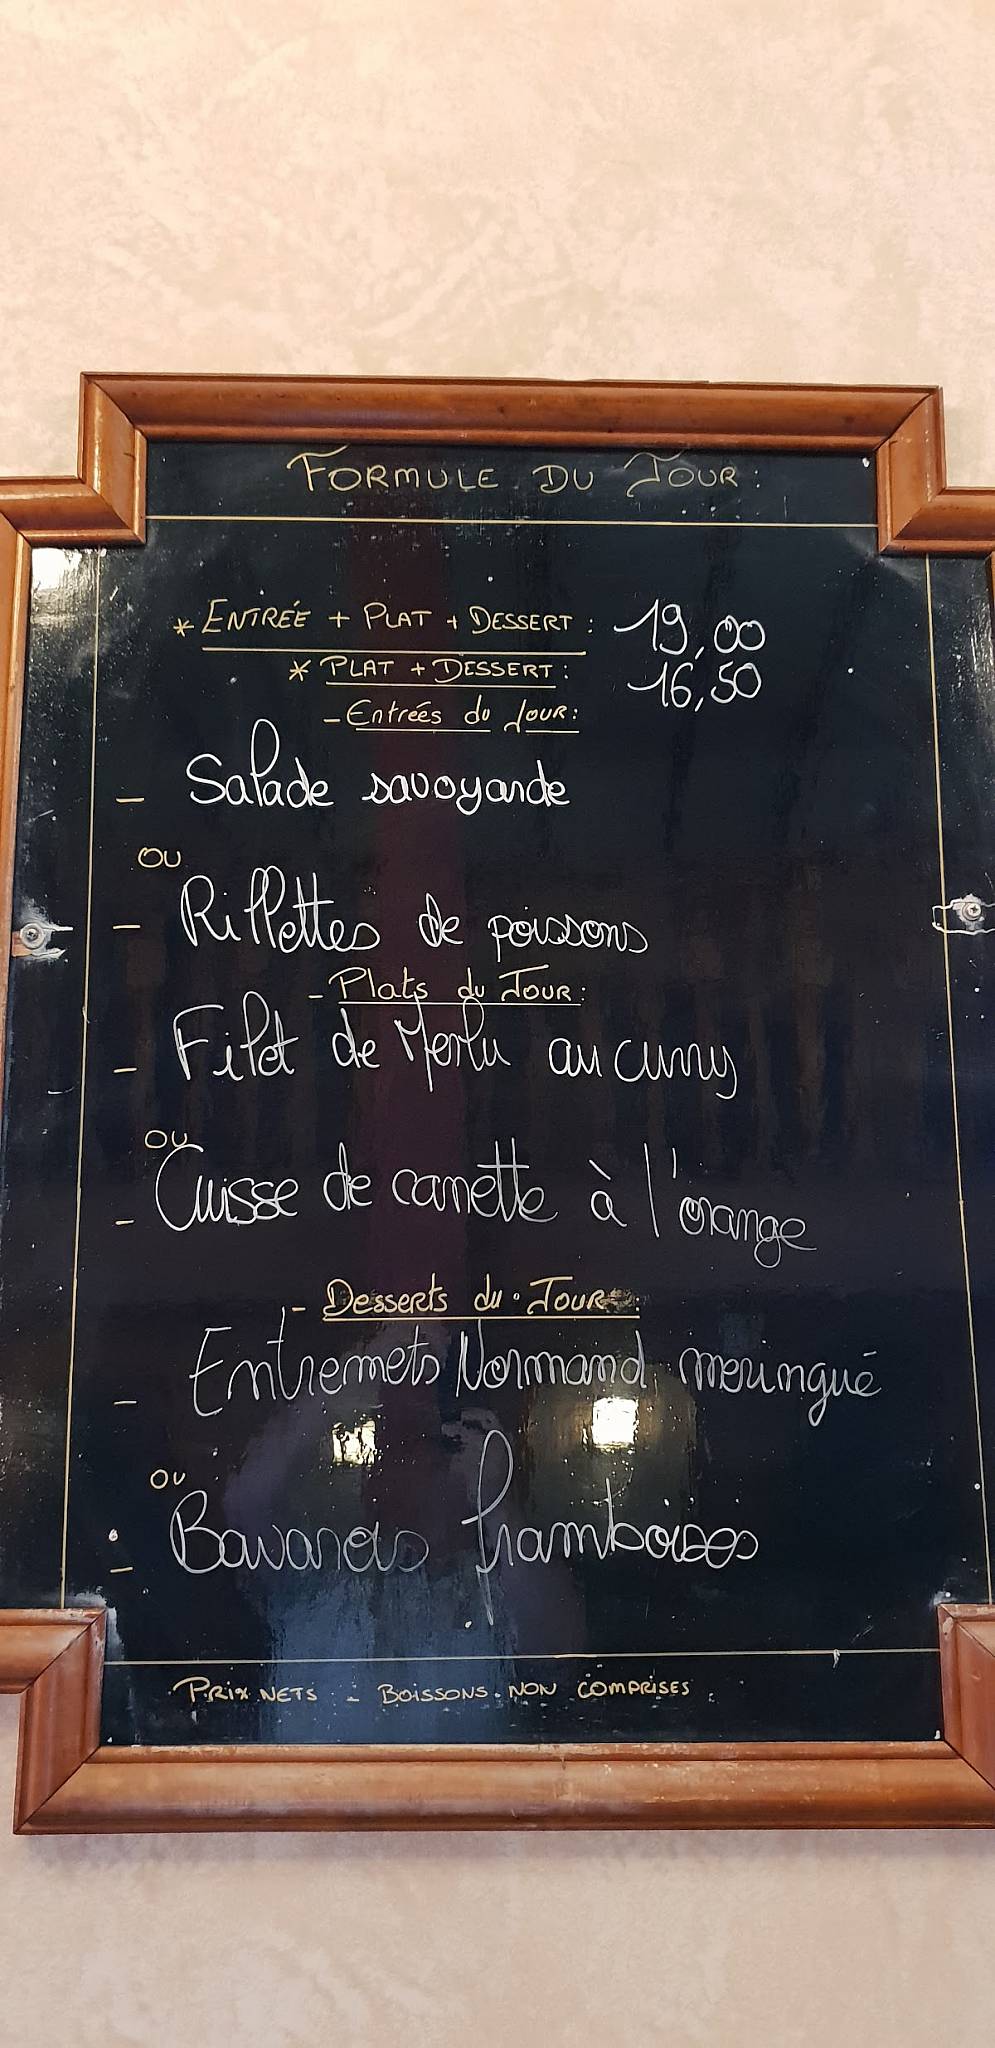 FORMULE DU JOUR :
* ENTRÉE + PLAT + DESSERT : 19,00
* PLAT + DESSERT : 16,50
- Entrées du JOUR :
- Salade savoyarde
OU
- Rillettes de poissons
- Plats du JOUR :
- Filet de Merlu au curry
OU
- Cuisse de canette à l'orange
- Desserts du JOUR :
- Entremets Normand meringué
OU
- Bavarois framboises
PRIX NETS - BOISSONS NON COMPRISES